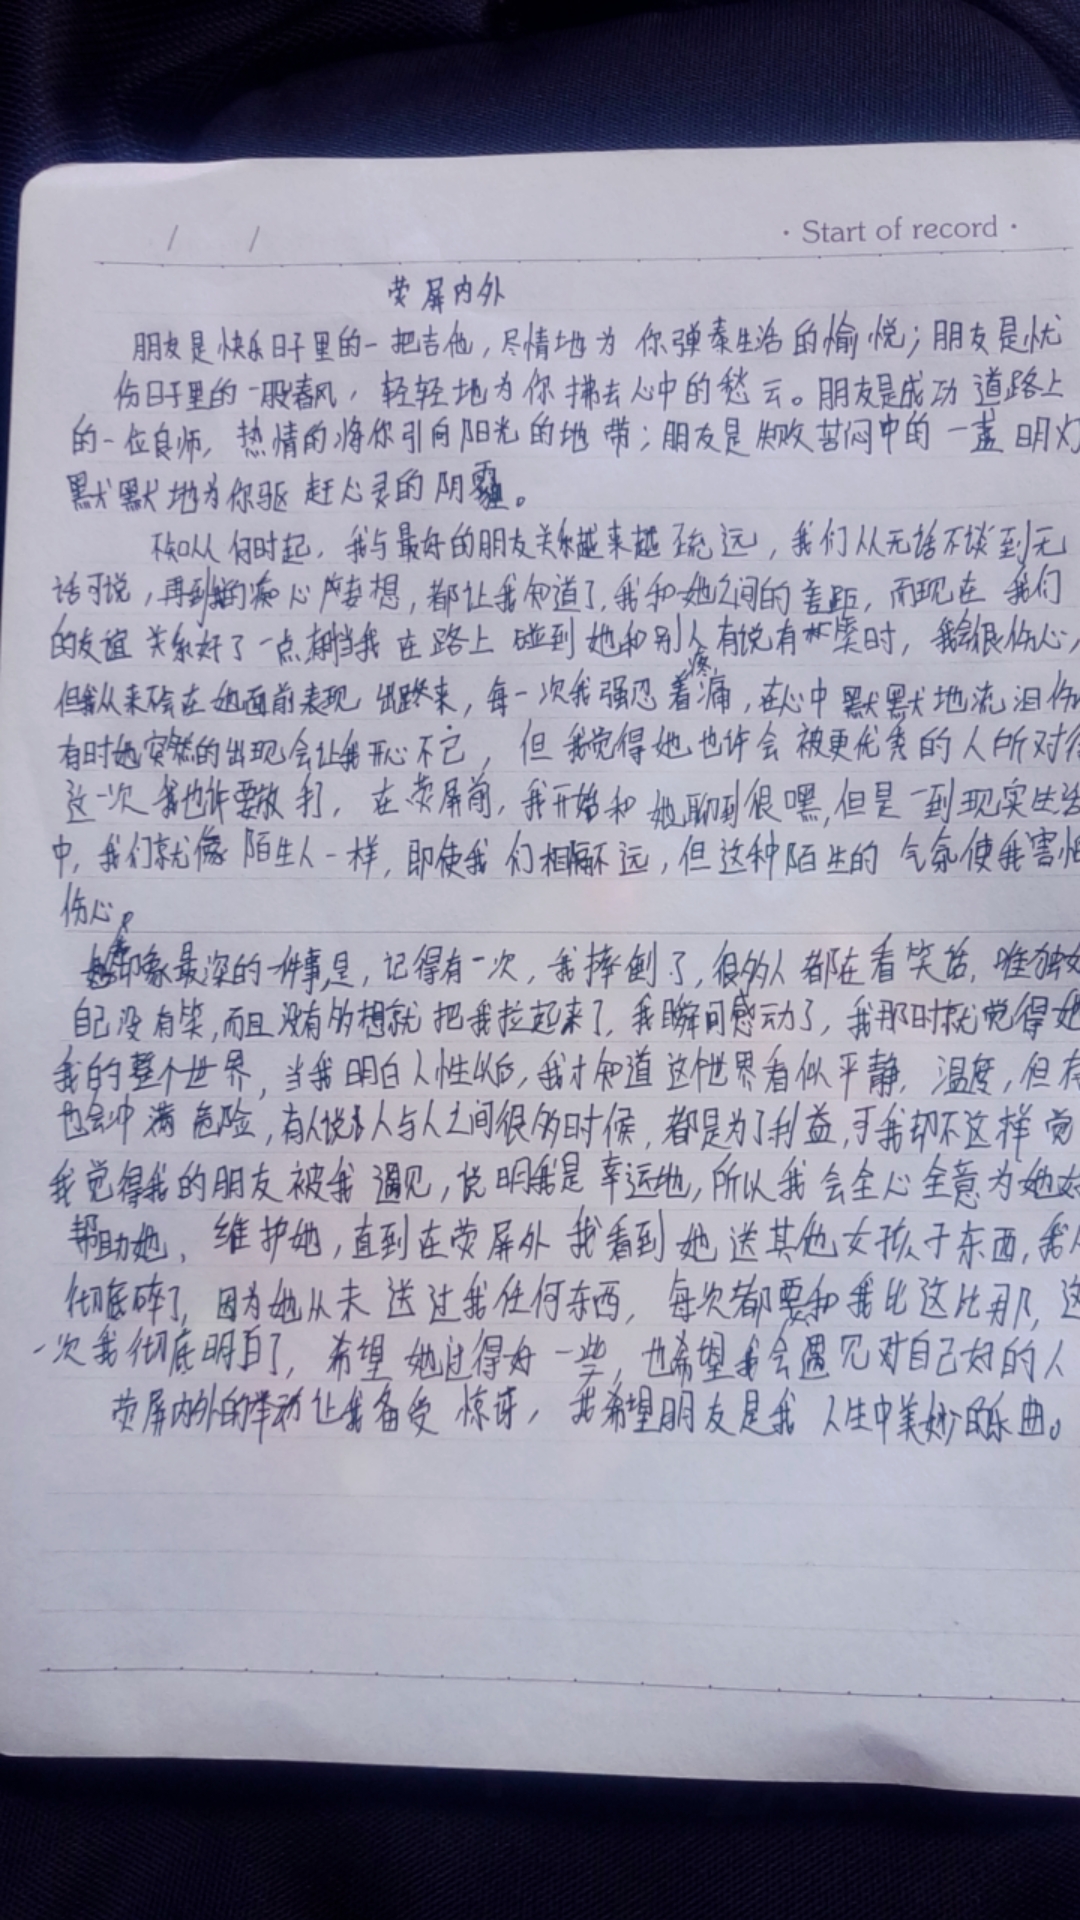 / /
· Start of record ·
荧屏内外
朋友是快乐日子里的一把吉他，尽情地为你弹奏生活的愉悦；朋友是忧
伤日子里的一股春风，轻轻地为你拂去心中的愁云。朋友是成功道路上
的一位良师，热情的将你引向阳光的地带；朋友是失败苦闷中的一盏明灯
默默地为你驱赶心灵的阴霾。
不知从何时起，我与最好的朋友关系越来越疏远，我们从无话不谈到无
话可说，再到我的痴心妄想，都让我知道了，我和她之间的差距，而现在我们
的友谊关系好了一点，当我在路上碰到她和别人有说有笑时，我会很伤心，
但我从来不会在她面前表现出来，每一次我强忍着疼痛，在心中默默地流泪伤
有时她突然的出现会让我开心不已，但我觉得她也许会被更优秀的人所对待
这一次我也许要放手了，在荧屏前，我开始和她聊到很嘿，但是一到现实生活
中，我们就像陌生人一样，即使我们相隔不远，但这种陌生的气氛使我害怕
伤心。
印象最深的一件事是，记得有一次，我摔倒了，很多人都在看笑话，唯独她
自己没有笑，而且没有多想就把我拉起来了，我瞬间感动了，我那时就觉得她
我的整个世界，当我明白人性以后，我才知道这个世界看似平静，温度，但有
也会冲满危险，有人说人与人之间很多时候，都是为了利益，可我却不这样觉
我觉得我的朋友被我遇见，说明我是幸运地，所以我会全心全意为她好
帮助她，维护她，直到在荧屏外我看到她送其他女孩子东西，我
彻底碎了，因为她从未送过我任何东西，每次都要和我比这比那，这
一次我彻底明白了，希望她过得好一些，也希望我会遇见对自己好的人
荧屏内外的举动让我备受惊讶，我希望朋友是我人生中美妙的乐曲。